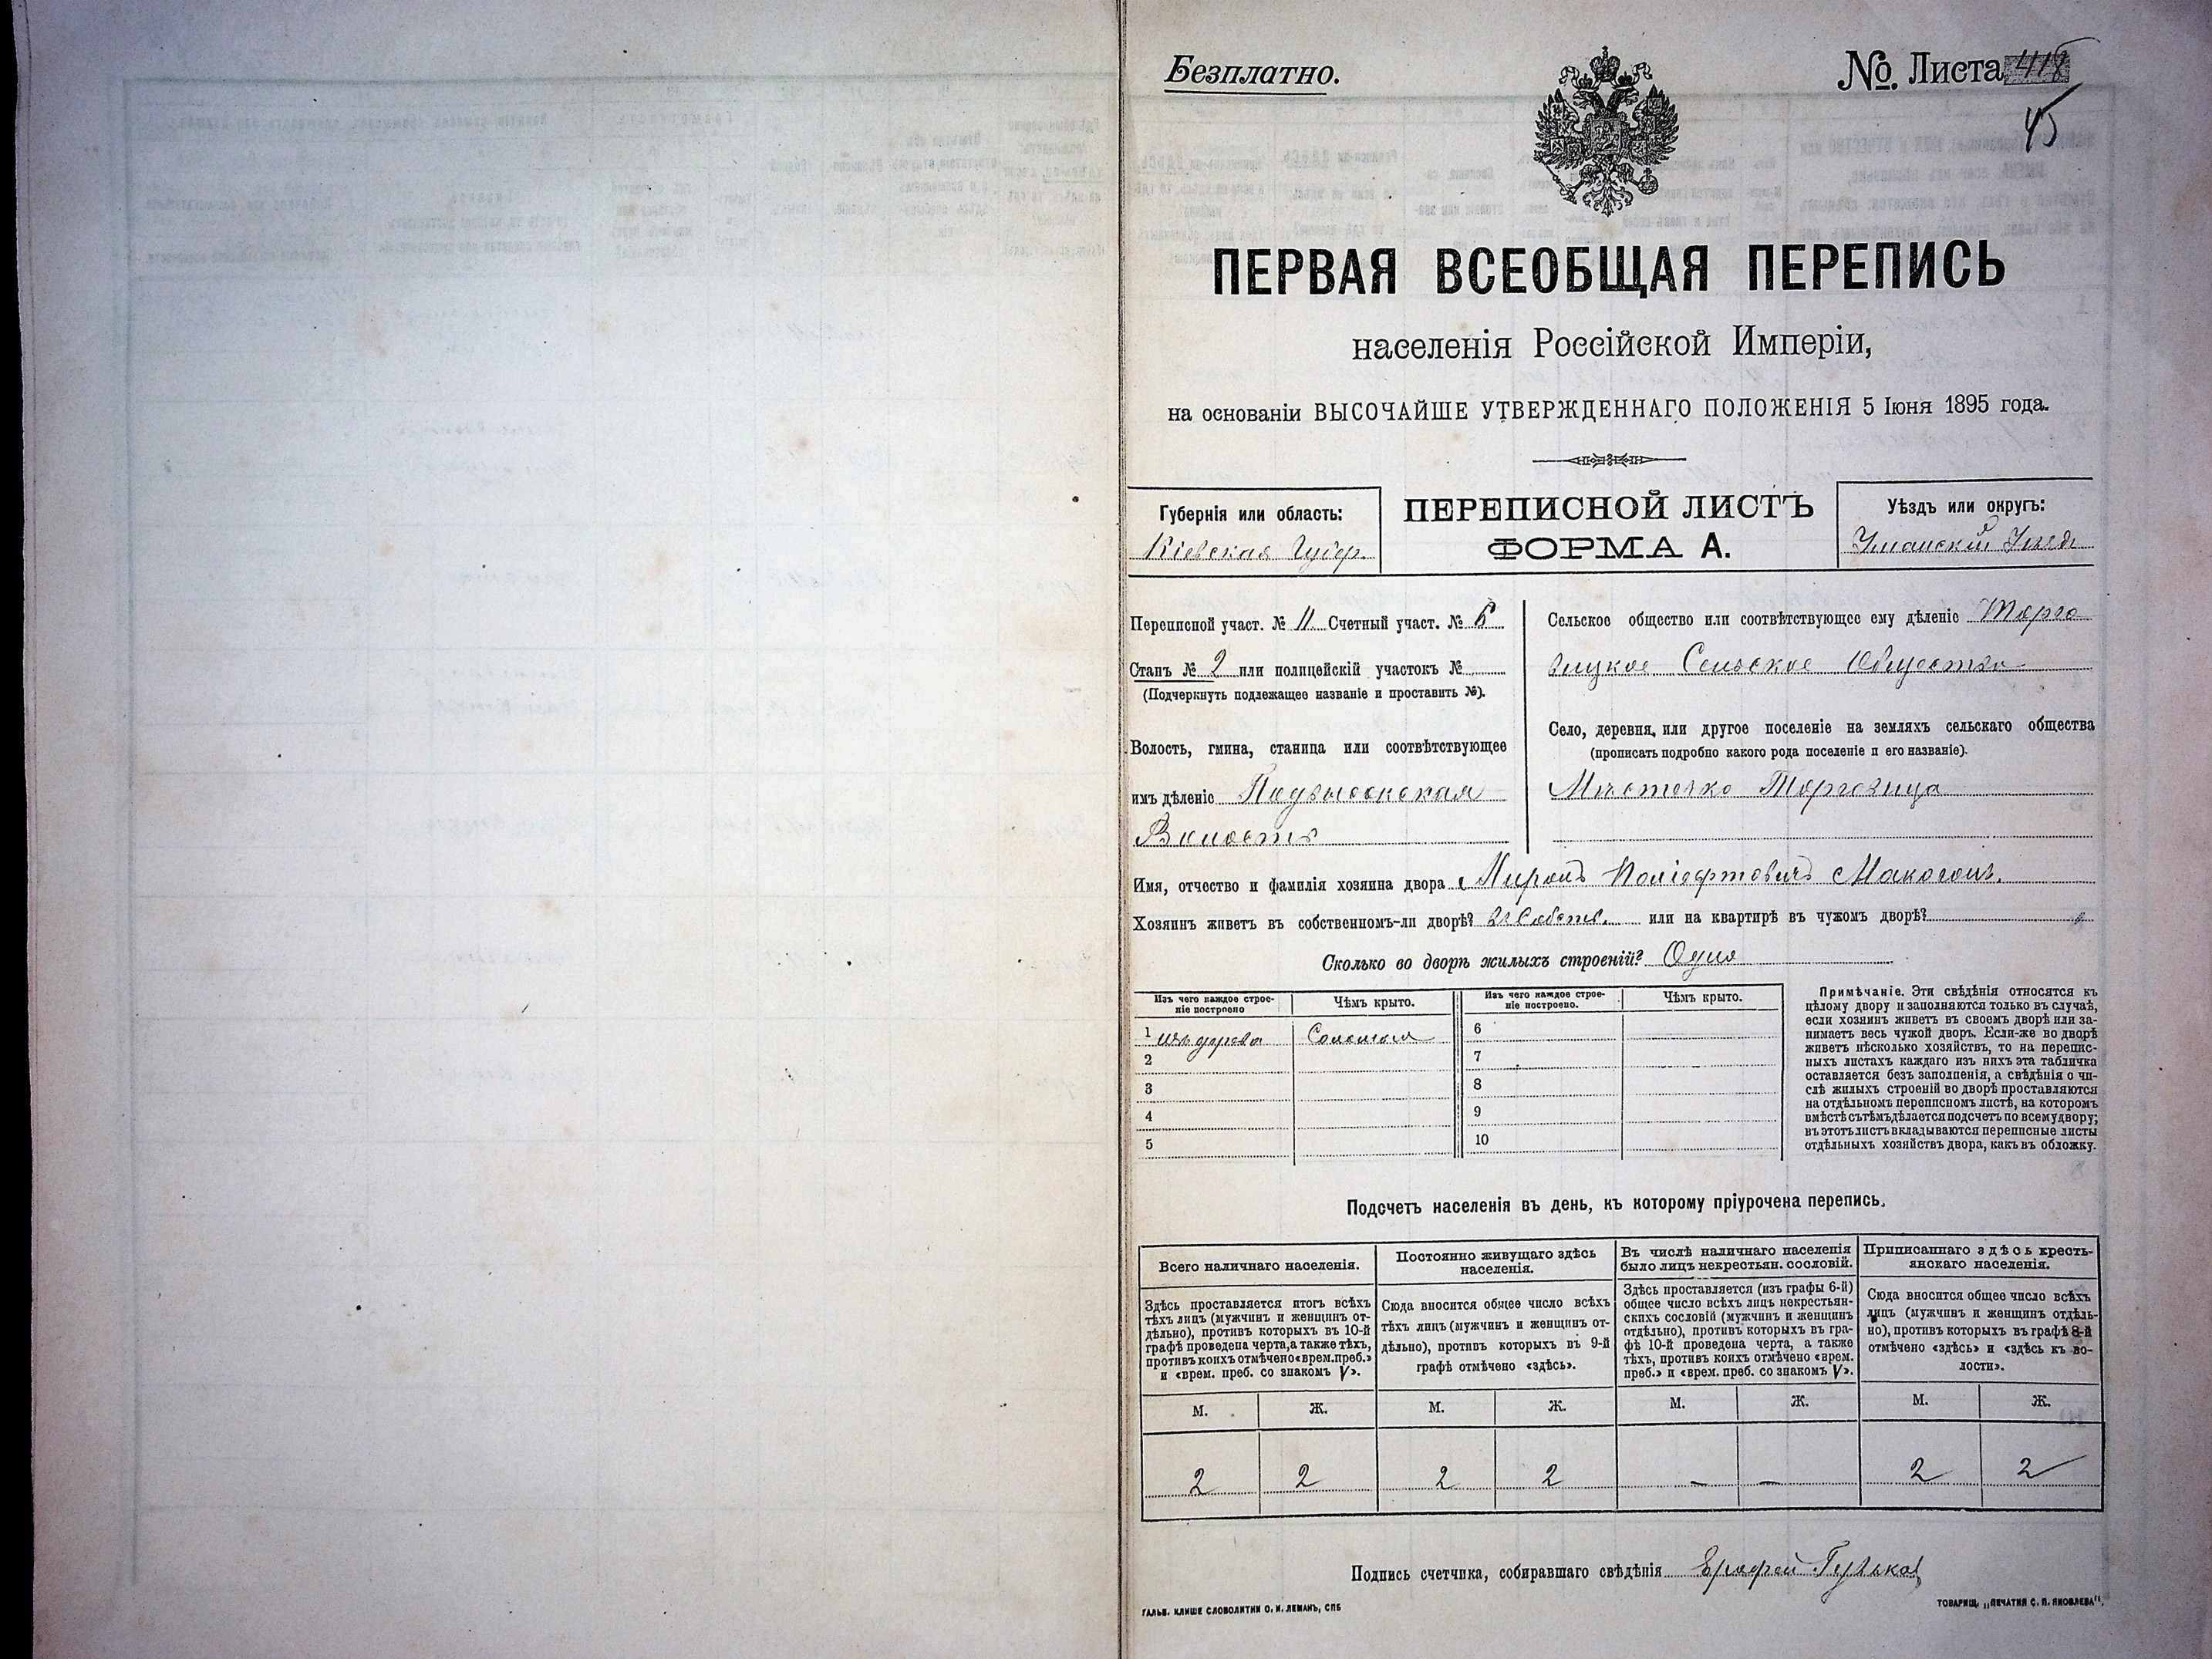 Безплатно.
№. Листа 418
45
ПЕРВАЯ ВСЕОБЩАЯ ПЕРЕПИСЬ
населенія Россійской Имперіи,
на основаніи ВЫСОЧАЙШЕ УТВЕРЖДЕННАГО ПОЛОЖЕНІЯ 5 Іюня 1895 года.
Губернія или область:
Кіевская Губер.
ПЕРЕПИСНОЙ ЛИСТЪ
ФОРМА А.
Уѣздъ или округъ:
Уманскій Уѣздъ
Переписной участ. № 11 Счетный участ. № 6
Станъ № 2 или полицейскій участокъ №
(Подчеркнуть подлежащее названіе и проставить №).
Волость, гмина, станица или соотвѣтствующее
имъ дѣленіе Подвысокская
Волость
Сельское общество или соотвѣтствующее ему дѣленіе Торго
вицкое Сельское Общество
Село, деревня, или другое поселеніе на земляхъ сельскаго общества
(прописать подробно какого рода поселеніе и его названіе).
Мѣстечко Торговица
Имя, отчество и фамилія хозяина двора Миронъ Макогонъ.
Хозяинъ живетъ въ собственномъ-ли дворѣ? въ Собств. или на квартирѣ въ чужомъ дворѣ?
Сколько во дворѣ жилыхъ строеній? Одно
Изъ чего каждое строе-
ніе построено
Чѣмъ крыто.
Изъ чего каждое строе-
ніе построено.
Чѣмъ крыто.
1 изъ дерева Соломою
2
3
4
5
6
7
8
9
10
Примѣчаніе. Эти свѣдѣнія относятся къ
цѣлому двору и заполняются только въ случаѣ,
если хозяинъ живетъ въ своемъ дворѣ или за-
нимаетъ весь чужой дворъ. Если-же во дворѣ
живетъ нѣсколько хозяйствъ, то на перепис-
ныхъ листахъ каждаго изъ нихъ эта табличка
оставляется безъ заполненія, а свѣдѣнія о чи-
слѣ жилыхъ строеній во дворѣ проставляются
на отдѣльномъ переписномъ листѣ, на которомъ
вмѣстѣ съ тѣмъ дѣлается подсчетъ по всему двору;
въ этотъ листъ вкладываются переписные листы
отдѣльныхъ хозяйствъ двора, какъ въ обложку.
Подсчетъ населенія въ день, къ которому пріурочена перепись.
Всего наличнаго населенія.
Здѣсь проставляется итогъ всѣхъ
тѣхъ лицъ (мужчинъ и женщинъ от-
дѣльно), противъ которыхъ въ 10-й
графѣ проведена черта, а также тѣхъ,
противъ коихъ отмѣчено «врем. преб.»
и «врем. преб. со знакомъ V».
Постоянно живущаго здѣсь
населенія.
Сюда вносится общее число всѣхъ
тѣхъ лицъ (мужчинъ и женщинъ от-
дѣльно), противъ которыхъ въ 9-й
графѣ отмѣчено «здѣсь».
Въ числѣ наличнаго населенія
было лицъ некрестьян. сословій.
Здѣсь проставляется (изъ графы 6-й)
общее число всѣхъ лицъ некрестьян-
скихъ сословій (мужчинъ и женщинъ
отдѣльно), противъ которыхъ въ гра-
фѣ 10-й проведена черта, а также
тѣхъ, противъ коихъ отмѣчено «врем.
преб.» и «врем. преб. со знакомъ V».
Приписаннаго здѣсь кресть-
янскаго населенія.
Сюда вносится общее число всѣхъ
лицъ (мужчинъ и женщинъ отдѣль-
но), противъ которыхъ въ графѣ 8-й
отмѣчено «здѣсь» и «здѣсь къ во-
лости».
М. Ж. М. Ж. М. Ж. М. Ж.
2 2 2 2 — — 2 2
Подпись счетчика, собиравшаго свѣдѣнія Ерофей
ГАЛЬВ. КЛИШЕ СЛОВОЛИТНИ О. И. ЛЕМАНЪ, СПБ
ТОВАРИЩ. „ПЕЧАТНЯ С. П. ЯКОВЛЕВА“.